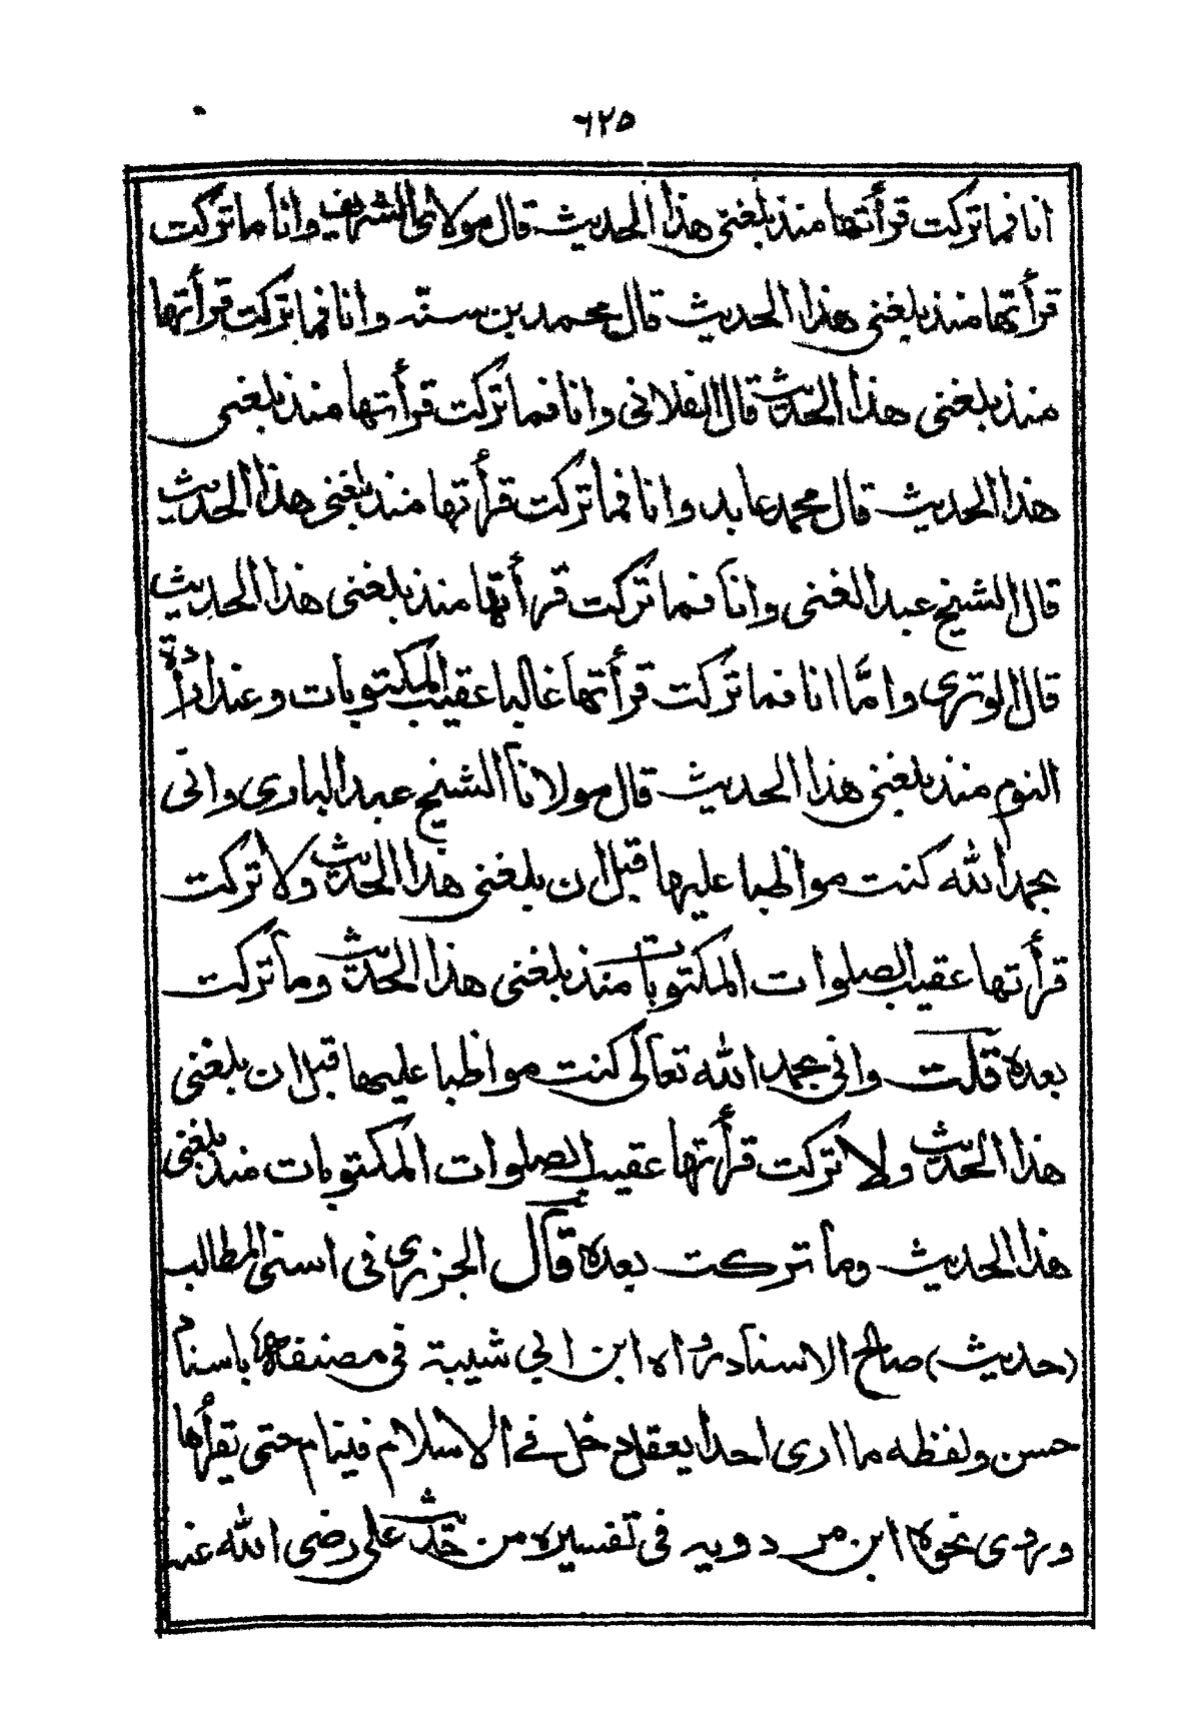 ٦٢٥
انا فما تركت قرأتها منذ بلغنى هذا الحديث قال مولاى الشريف وانا ما تركت
قرأتها منذ بلغنى هذا الحديث قال محمد بن سنته وانا فما تركت قرأتها
منذ بلغنى هذا الحديث قال الفلانى وانا فما تركت قرأتها منذ بلغنى
هذا الحديث قال محمد عابد وانا فما تركت قرأتها منذ بلغنى هذا الحديث
قال الشيخ عبد الغنى وانا فما تركت قرأتها منذ بلغنى هذا الحديث
قال الوترى وامّا انا فما تركت قرأتها غالبا عقيب المكتوبات وعند ارادة
النوم منذ بلغنى هذا الحديث قال مولانا الشيخ عبد البارى وانّى
بحمد الله كنت مواظبا عليها قبل ان بلغنى هذا الحديث ولا تركت
قرأتها عقيب الصلوات المكتوبات منذ بلغنى هذا الحديث وما تركت
بعده قلت وانى بحمد الله تعالى كنت مواظبا عليها قبل ان بلغنى
هذا الحديث ولا تركت قرأتها عقيب الصلوات المكتوبات منذ بلغنى
هذا الحديث وما تركت بعده قال الجزرى فى اسنى المطالب
(حديث) صالح الاسناد رواه ابن ابي شيبة فى مصنفه باسناد
حسن ولفظه ما ارى احدا يعقل دخل فے الاسلام فينام حتى يقرأها
وروى نحوه ابن مردويه فى تفسيره من حديث على رضى الله عنه